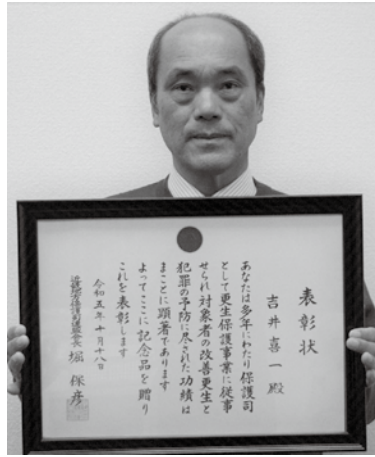 表彰状
吉井喜一殿
あなたは多年にわたり保護司
として更生保護事業に従事
せられ対象者の改善更生と
犯罪の予防に尽された功績は
まことに顕著であります
よってここに記念品を贈り
これを表彰します
令和五年十月十八日
近畿地方保護司連盟会長 堀保彦